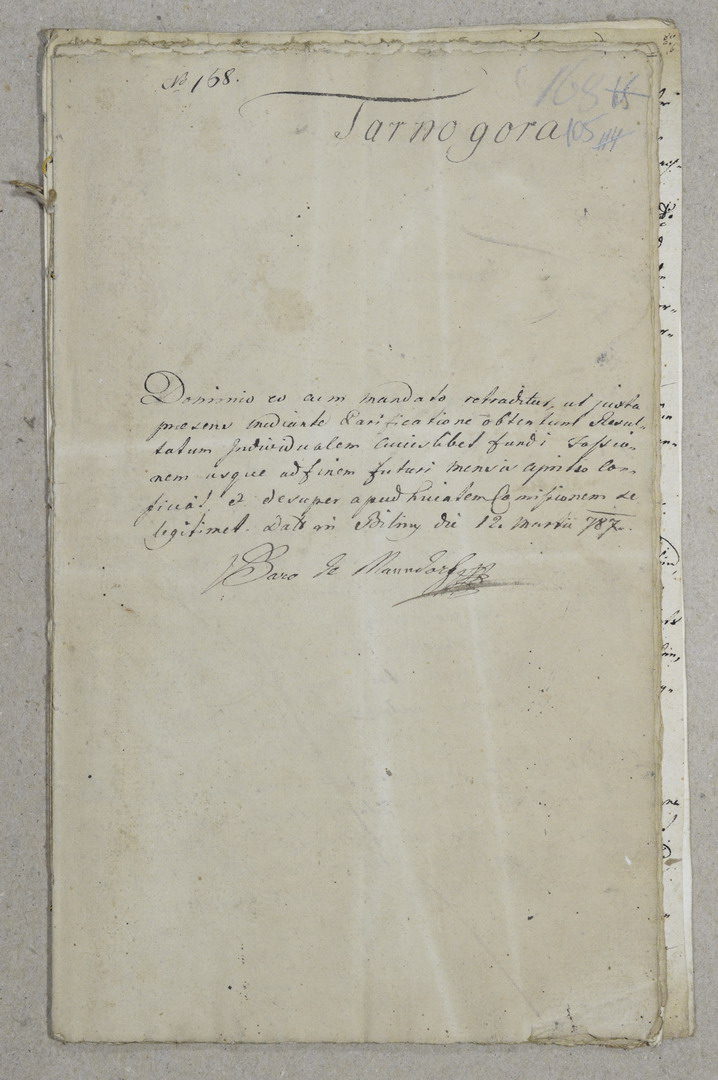 No 168.
Tarnogora
168 65
105 114
Dominio eo cum mandato retraditur, ut juxta
praesens mediante Tarificatione obtentum Resul-
tatum Individualem cuiuslibet fundi Fassio-
nem usque ad finem futuri mensis aprilis Con-
ficiat, et desuper apud huiatem Comissionem se
legitimet. Datt in die 12. Martii 787.
Baro de